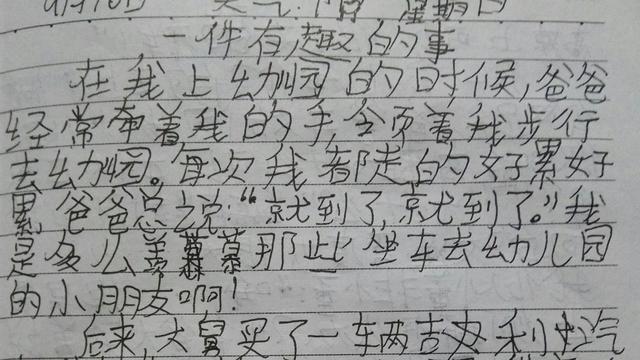 天气:阴 星期日
一件有趣的事
在我上幼园的时候,爸爸
经常牵着我的手,领着我步行
去幼园。每次我都走的好累好
累爸爸总说:“就到了,就到了。”我
是多么羡慕那些坐车去幼儿园
的小朋友啊!
后来,大舅买了一车两吉